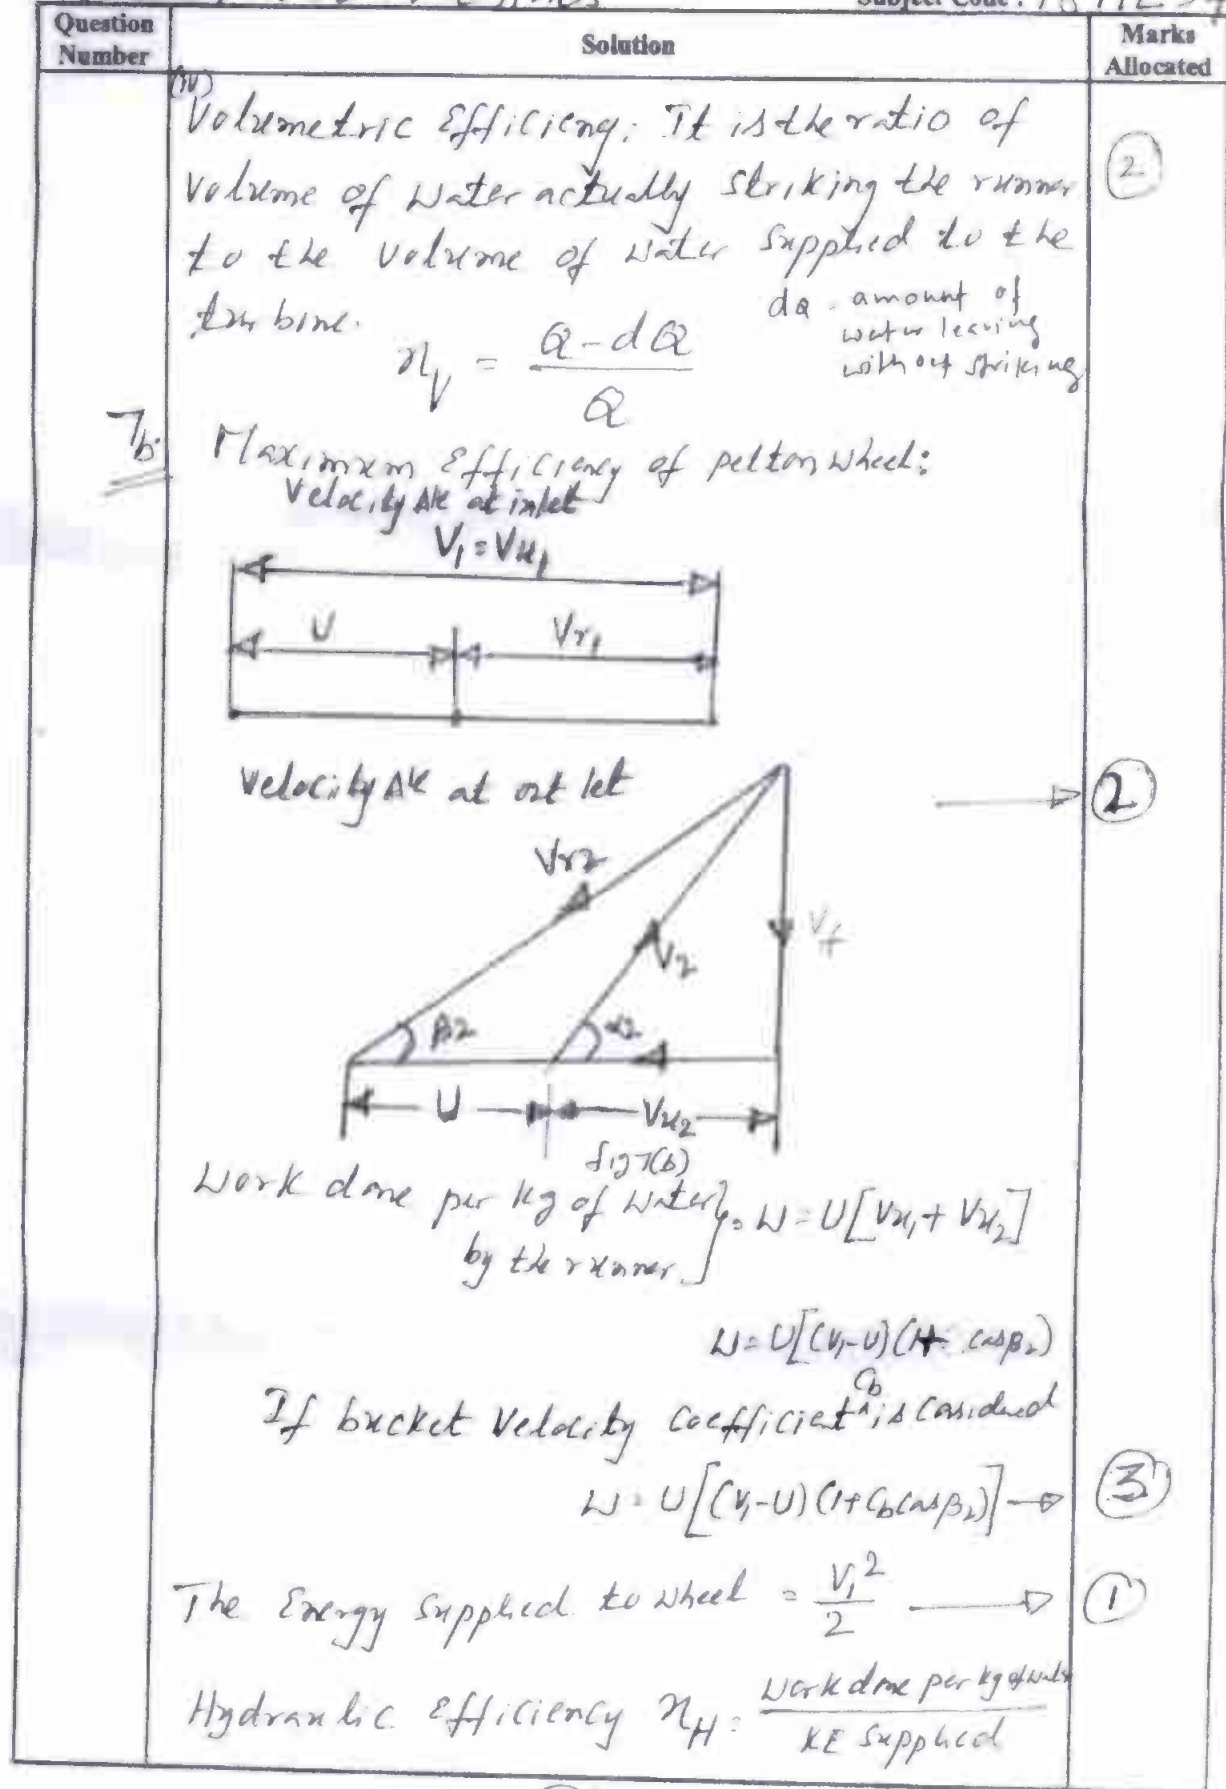 Subject Code :
Question Number
Solution
Marks Allocated
(iv)
Volumetric Efficieny: It is the ratio of
Volume of water actually striking the runner
to the volume of water supplied to the
turbine.
dQ - amount of
water leaving
without striking
ηV = (Q-dQ)/Q
2
7b.
Maximum Efficiency of pelton wheel:
Velocity Δle at inlet
V1 = Vu1
U
Vr1
Velocity Δle at outlet
2
Vr2
V2
Vf
β2
α2
U
Vu2
fig 7(b)
Work done per kg of water
by the runner } = W = U[Vu1 + Vu2]
W = U[(V1-U)(1+ cosβ2)
If bucket velocity coefficient Cb is considued
W = U[(V1-U)(1+Cb cosβ2)] →
3
The Energy supplied to wheel = V1²/2 →
1
Hydraulic Efficiency ηH = Work done per kg of water / KE supplied